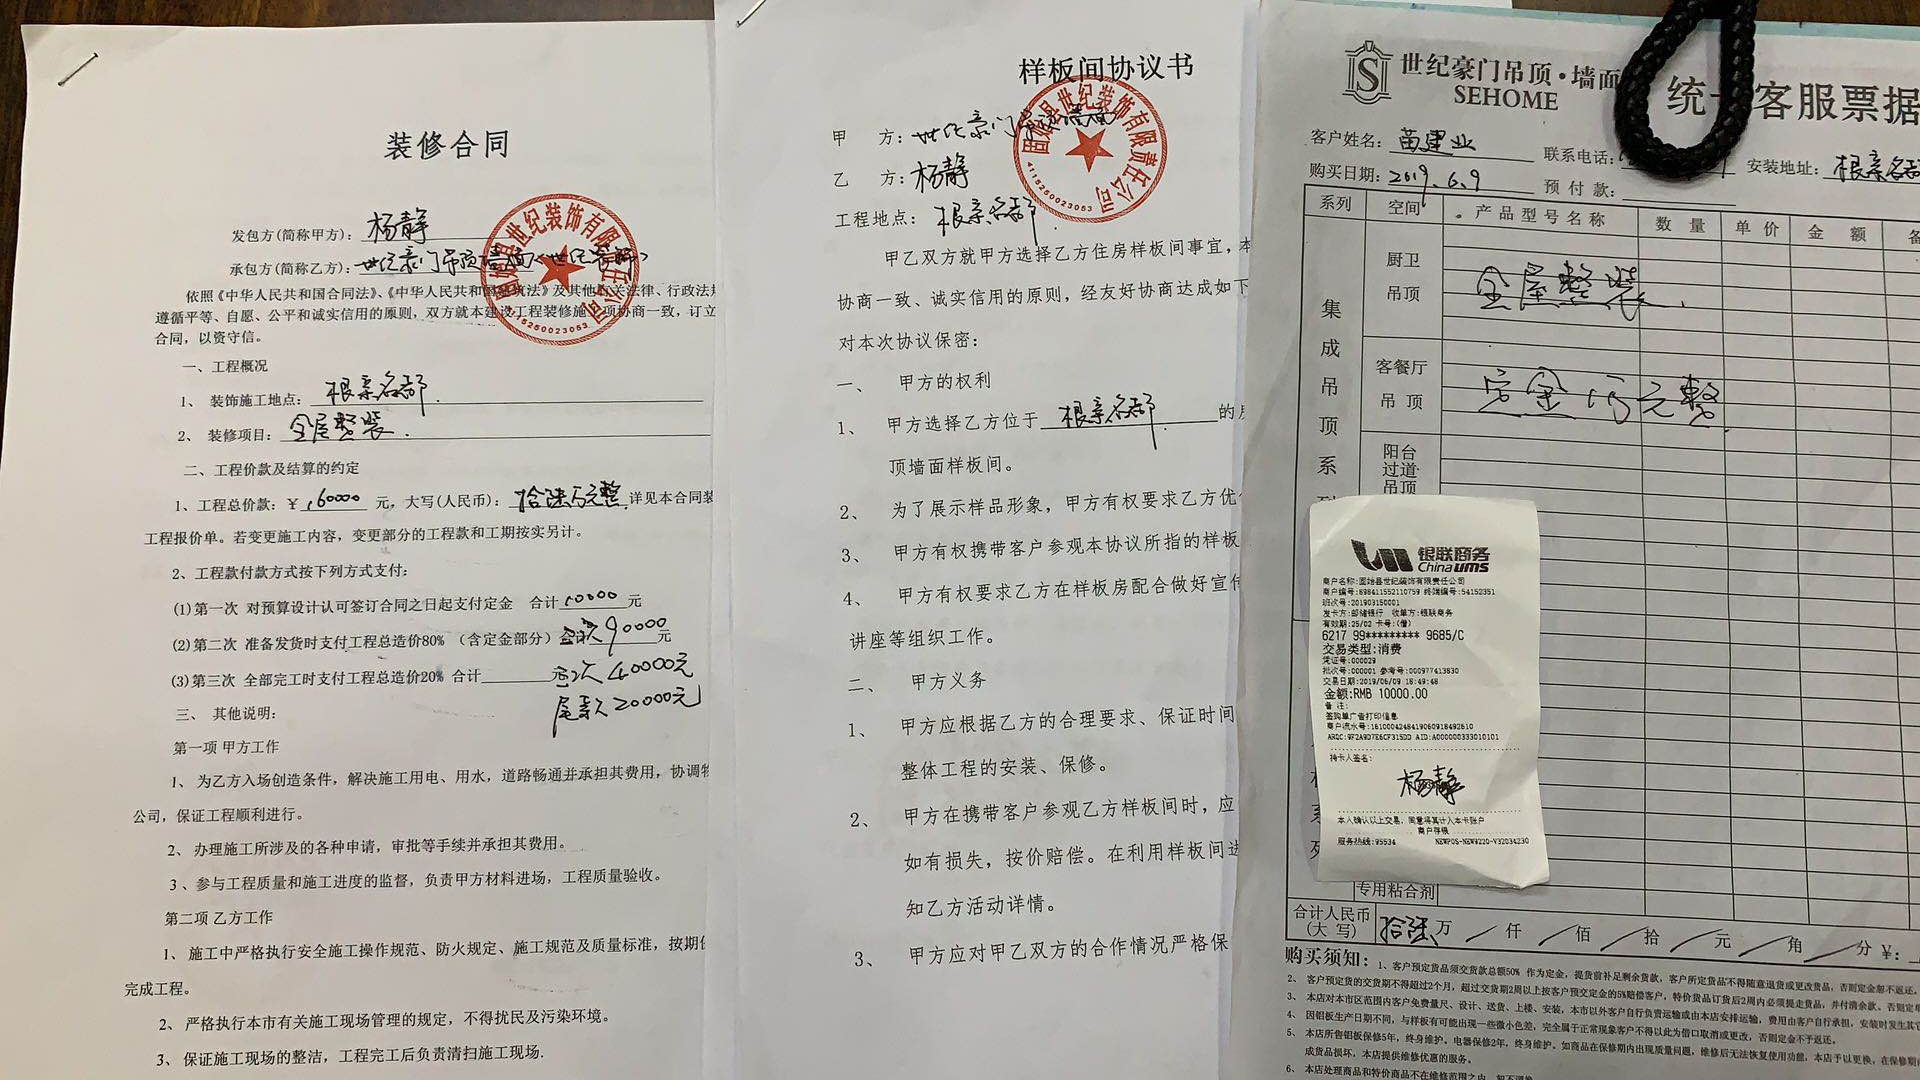 装修合同
发包方(简称甲方): 杨静
承包方(简称乙方): 世纪豪门吊顶墙面<世纪装饰>
固始县世纪装饰有限责任公司
4115250023053
依照《中华人民共和国合同法》、《中华人民共和国建筑法》及其他有关法律、行政法规
遵循平等、自愿、公平和诚实信用的原则，双方就本建设工程装修施工事项协商一致，订立
合同，以资守信。
一、工程概况
1、 装饰施工地点: 根亲名邸
2、 装修项目: 全屋整装.
二、工程价款及结算的约定
1、工程总价款: ¥ 160000 元，大写(人民币): 拾陆万元整 详见本合同装
工程报价单。若变更施工内容，变更部分的工程款和工期按实另计。
2、工程款付款方式按下列方式支付:
(1)第一次 对预算设计认可签订合同之日起支付定金 合计 10000 元
(2)第二次 准备发货时支付工程总造价80% (含定金部分) 90000元
(3)第三次 全部完工时支付工程总造价20% 合计 40000元
尾款 20000元
三、 其他说明:
第一项 甲方工作
1、 为乙方入场创造条件，解决施工用电、用水，道路畅通并承担其费用，协调物
公司，保证工程顺利进行。
2、 办理施工所涉及的各种申请，审批等手续并承担其费用。
3、参与工程质量和施工进度的监督，负责甲方材料进场，工程质量验收。
第二项 乙方工作
1、 施工中严格执行安全施工操作规范、防火规定、施工规范及质量标准，按期保
完成工程。
2、 严格执行本市有关施工现场管理的规定，不得扰民及污染环境。
3、 保证施工现场的整洁，工程完工后负责清扫施工现场.
样板间协议书
甲 方: 世纪豪门吊顶墙面
固始县世纪装饰有限责任公司
4115250023053
乙 方: 杨静
工程地点: 根亲名邸.
甲乙双方就甲方选择乙方住房样板间事宜，本
协商一致、诚实信用的原则，经友好协商达成如下
对本次协议保密:
一、 甲方的权利
1、 甲方选择乙方位于 根亲名邸. 的房
顶墙面样板间。
2、 为了展示样品形象，甲方有权要求乙方优
3、 甲方有权携带客户参观本协议所指的样板
4、 甲方有权要求乙方在样板房配合做好宣传
讲座等组织工作。
二、 甲方义务
1、 甲方应根据乙方的合理要求、保证时间
整体工程的安装、保修。
2、 甲方在携带客户参观乙方样板间时，应
如有损失，按价赔偿。在利用样板间进
知乙方活动详情。
3、 甲方应对甲乙双方的合作情况严格保
世纪豪门吊顶·墙面
SEHOME
统一客服票据
客户姓名: 苗建业 联系电话: 安装地址: 根亲名邸
购买日期: 2019.6.9 预 付 款:
系列 空间 产品型号名称 数 量 单 价 金 额 备
集成吊顶系列
厨卫吊顶 全屋整装.
客餐厅吊 顶 定金 万元整
阳台过道吊顶
银联商务
China ums
商户名称:固始县世纪装饰有限责任公司
商户编号:898411552110759 终端编号:54152351
班次号:201903150001
发卡方:邮储银行 收单方:银联商务
有效期:25/02 卡号:(借)
6217 99********* 9685/C
交易类型:消费
凭证号:000029
批次号:000001 参考号:000977413830
交易日期:2019/06/09 18:49:48
金额:RMB 10000.00
备注:
签购单广告打印信息
商户流水号:16100042484190609184926​10
ARQC:9F2A9D7E6CF315DD AID:A000000333010101
持卡人签名:
杨静
本人确认以上交易，同意将其计入本卡账户
商户存根
服务热线:95534 NEWPOS-NEW9220-V32034230
专用粘合剂
合计人民币(大 写) 拾陆 万 仟 佰 拾 元 角 分 ¥:
购买须知: 1、客户预定货品须交货款总额50% 作为定金，提货前补足剩余货款，客户所定货品不得随意退货或更改货品，否则定金恕不返还。
2、 客户预定货的交货期不得超过2个月，超过交货期2周以上按客户预交定金的5%赔偿客户，特价货品订货后2周内必须提走货品，并付清余款、否则定
3、 本店对本市区范围内客户免费量尺、设计、送货、上楼、安装，本市以外客户自行负责运输或由本店安排运输，费用由客户自行承担，安装时发生其它
4、 因铝板生产日期不同，与样板有可能出现一些微小色差，完全属于正常现象客户不得以此为借口取消或更改，否则定金不予返还。
5、 本店所售铝板保修5年，终身维护。电器保修2年，终身维护。如商品在保修期内出现质量问题，维修后无法恢复使用功能，本店予以更换，在保修期
成货品损坏，本店提供维修优惠的服务。
6、 本店处理商品和特价商品不在维修范围之内，恕不退换。